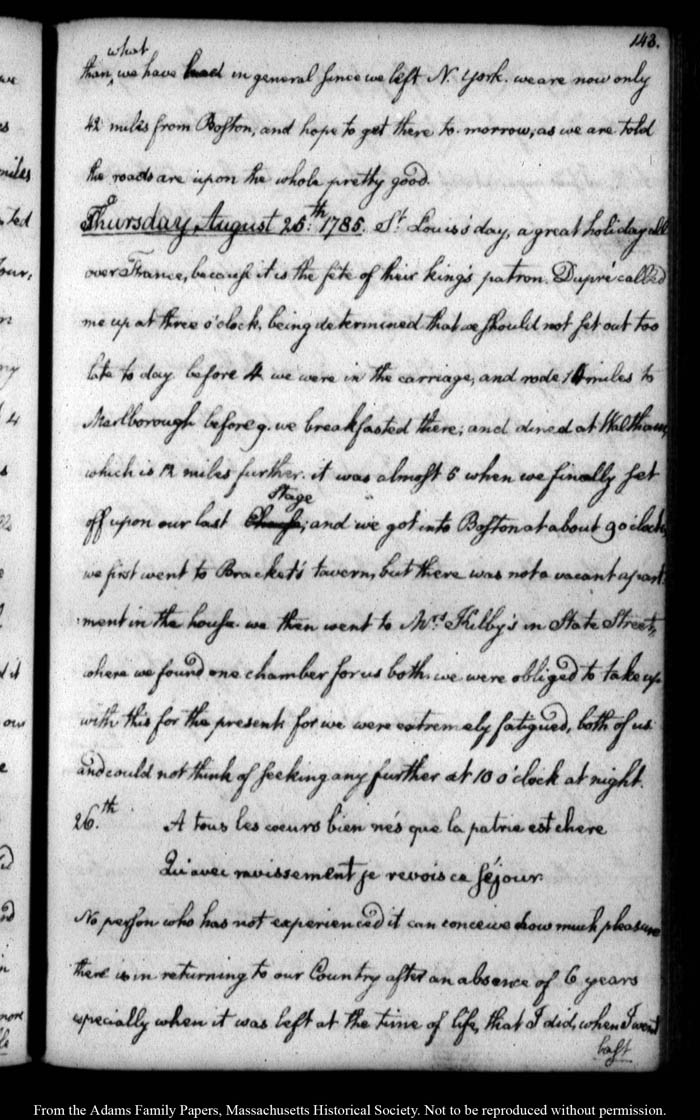 143.
what
than, we have had in general since we left N. York. we are now only
42 miles from Boston, and hope to get there to-morrow, as we are told
the roads are upon the whole pretty good.
Thursday August 25.th 1785. St. Louis's day, a great holiday all
over France, because it is the fête of their king's patron. Dupré called
me up at three o'clock, being determined that we should not set out too
late to day before 4 we were in the carriage, and rode miles to
Marlborough before 9. we breakfasted there; and dined at Waltham,
which is 12 miles further. it was almost 5 when we finally set
Stage
off upon our last ; and we got into Boston at about 9 o'clock,
we first went to Bracket's tavern, but there was not a vacant apart-
ment in the house. we then went to Mrs. Kilby's in State Street,
where we found one chamber for us both. we were obliged to take up
with this for the present for we were extremely fatigued, both of us
and could not think of seeking any further at 10 o'clock at night.
26.th A tous les coeurs bien nés que la patrie est chere
Qu'avec ravissement je revois ce séjour.
No person who has not experienced it can conceive how much pleasure
there is in returning to our Country after an absence of 6 years
especially when it was left at the time of life, that I did, when I went
last
miles
4
more
From the Adams Family Papers, Massachusetts Historical Society. Not to be reproduced without permission.